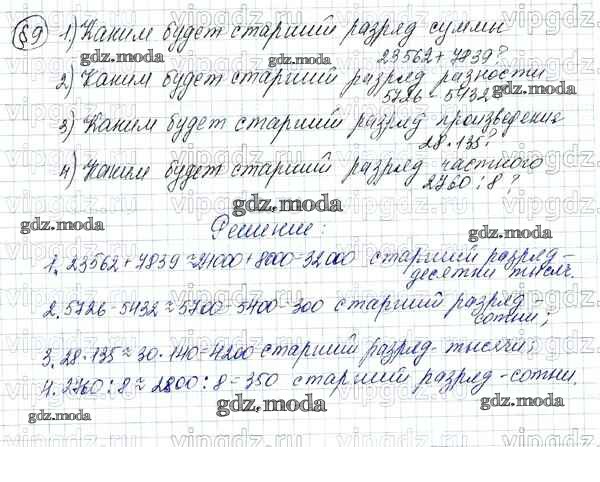 89 1) Каким будет старший разряд суммы
23562+7839?
2) Каким будет старший разряд разности
5726-5432
3) Каким будет старший разряд произведение
28·135?
4) Каким будет старший разряд частного
2760:8?
Решение:
1. 23562+7839≈24000+8000=32000 старший разряд-
десятки тысяч.
2. 5726-5432≈5700-5400=300 старший разряд-
сотни;
3. 28·135≈30·140=4200 старший разряд-тысячи;
4. 2760:8≈2800:8=350 старший разряд-сотни.
gdz.moda
vipgdz.ru